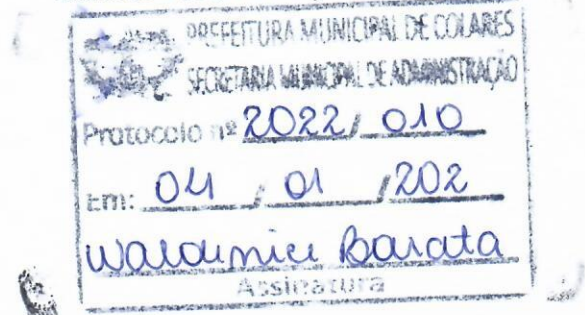 PREFEITURA MUNICIPAL DE COLARES
SECRETARIA MUNICIPAL DE ADMINISTRAÇÃO
Protocolo nº 2022/ 010
Em: 04 / 01 /202
Waldenice Barata
Assinatura